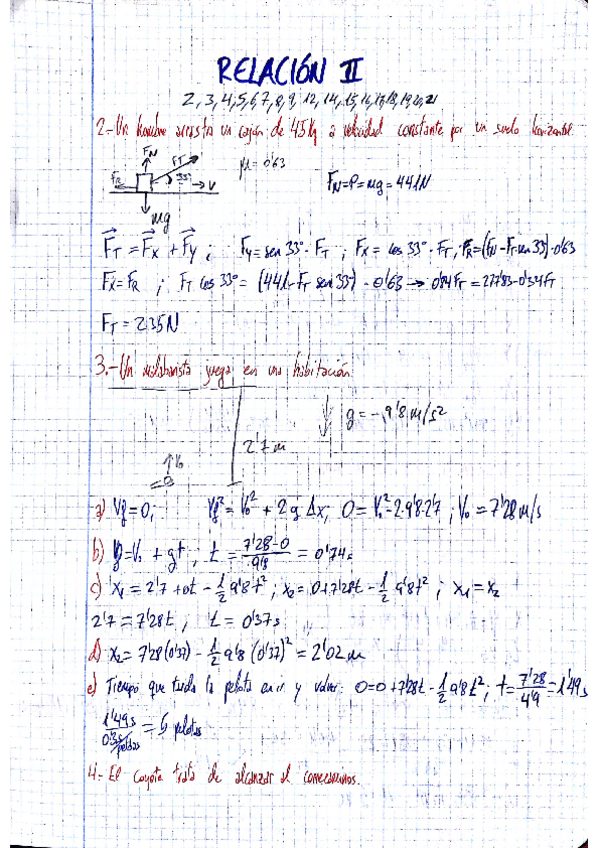 RELACIÓN II
2, 3, 4, 5, 6, 7, 8, 9, 12, 14, 15, 16, 17, 18, 19, 20, 21
2.- Un hombre arrastra un cajón de 45 Kg a velocidad constante por un suelo horizontal.
FN FT
μ = 0'63
FR 33° → v
FN = P = mg = 441N
mg
FT = Fx + Fy ; Fy = sen 33° · FT ; Fx = cos 33° · FT ; FR = (FN - FT sen 33) · 0'63
Fx = FR ; FT cos 33° = (441 - FT sen 33°) · 0'63 → 0'84 FT = 277'83 - 0'34 FT
FT = 235N
3.- Un malabarista juega en una habitación.
g = -9'8 m/s²
2'7 m
↑V₀
a) Vf = 0; Vf² = V₀² + 2g Δx; 0 = V₀² - 2·9'8·2'7 ; V₀ = 7'28 m/s
b) Vf = V₀ + gt ; t = 7'28-0/9'8 = 0'74 s
c) x₁ = 2'7 + 0t - 1/2 9'8t² ; x₂ = 0 + 7'28t - 1/2 9'8t² ; x₁ = x₂
2'7 = 7'28t , t = 0'37s
d) x₂ = 7'28(0'37) - 1/2 9'8 (0'37)² = 2'02 m
e) Tiempo que tarda la pelota en ir y volver: 0 = 0 + 7'28t - 1/2 9'8 t² ; t = 7'28/4'9 = 1'49s
1'49s / 0'3s/pelotas = 5 pelotas
4.- El coyote trata de alcanzar al correcaminos.